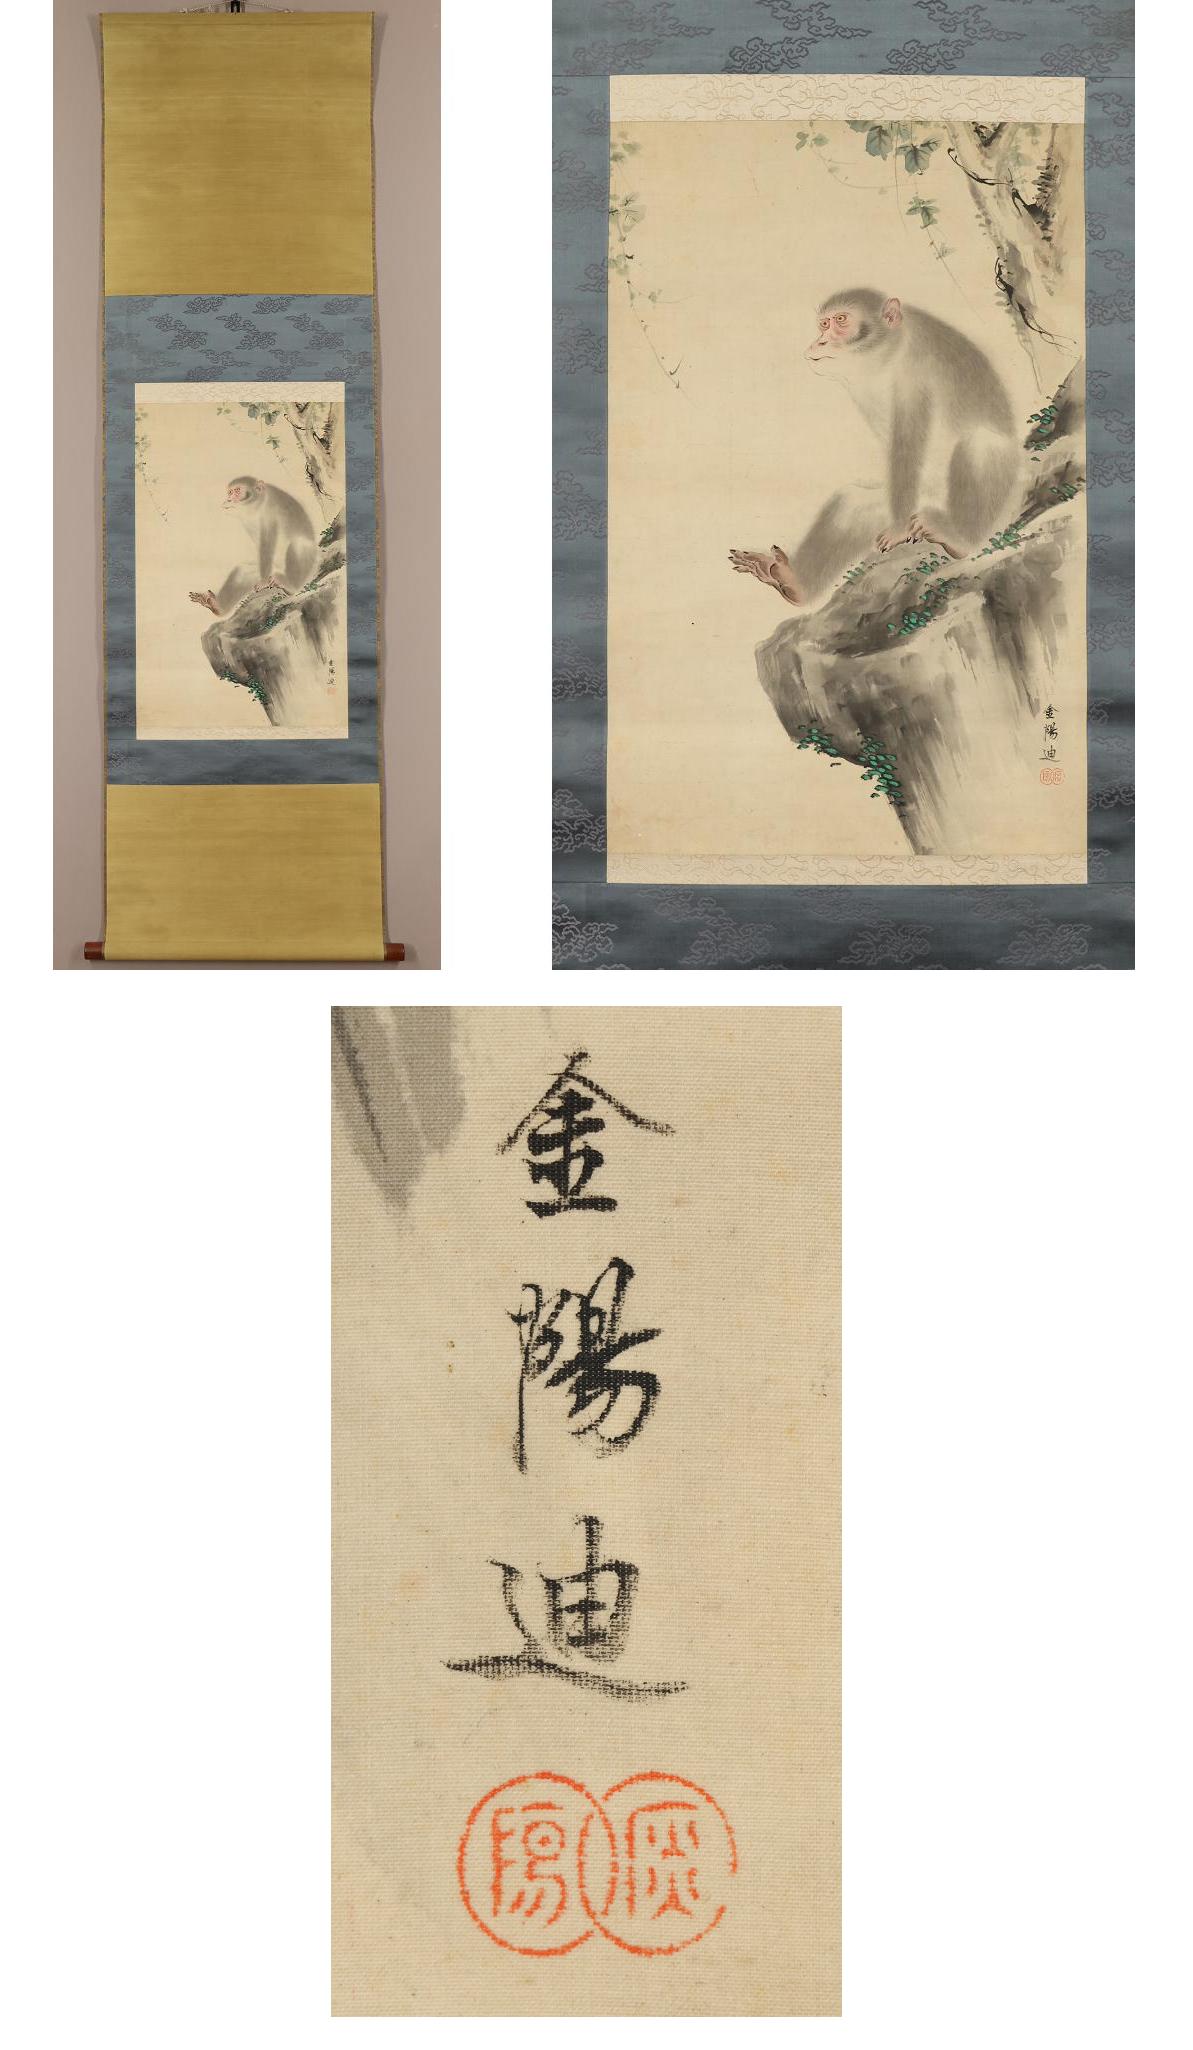 金陽迪
金陽迪
金陽迪
陽